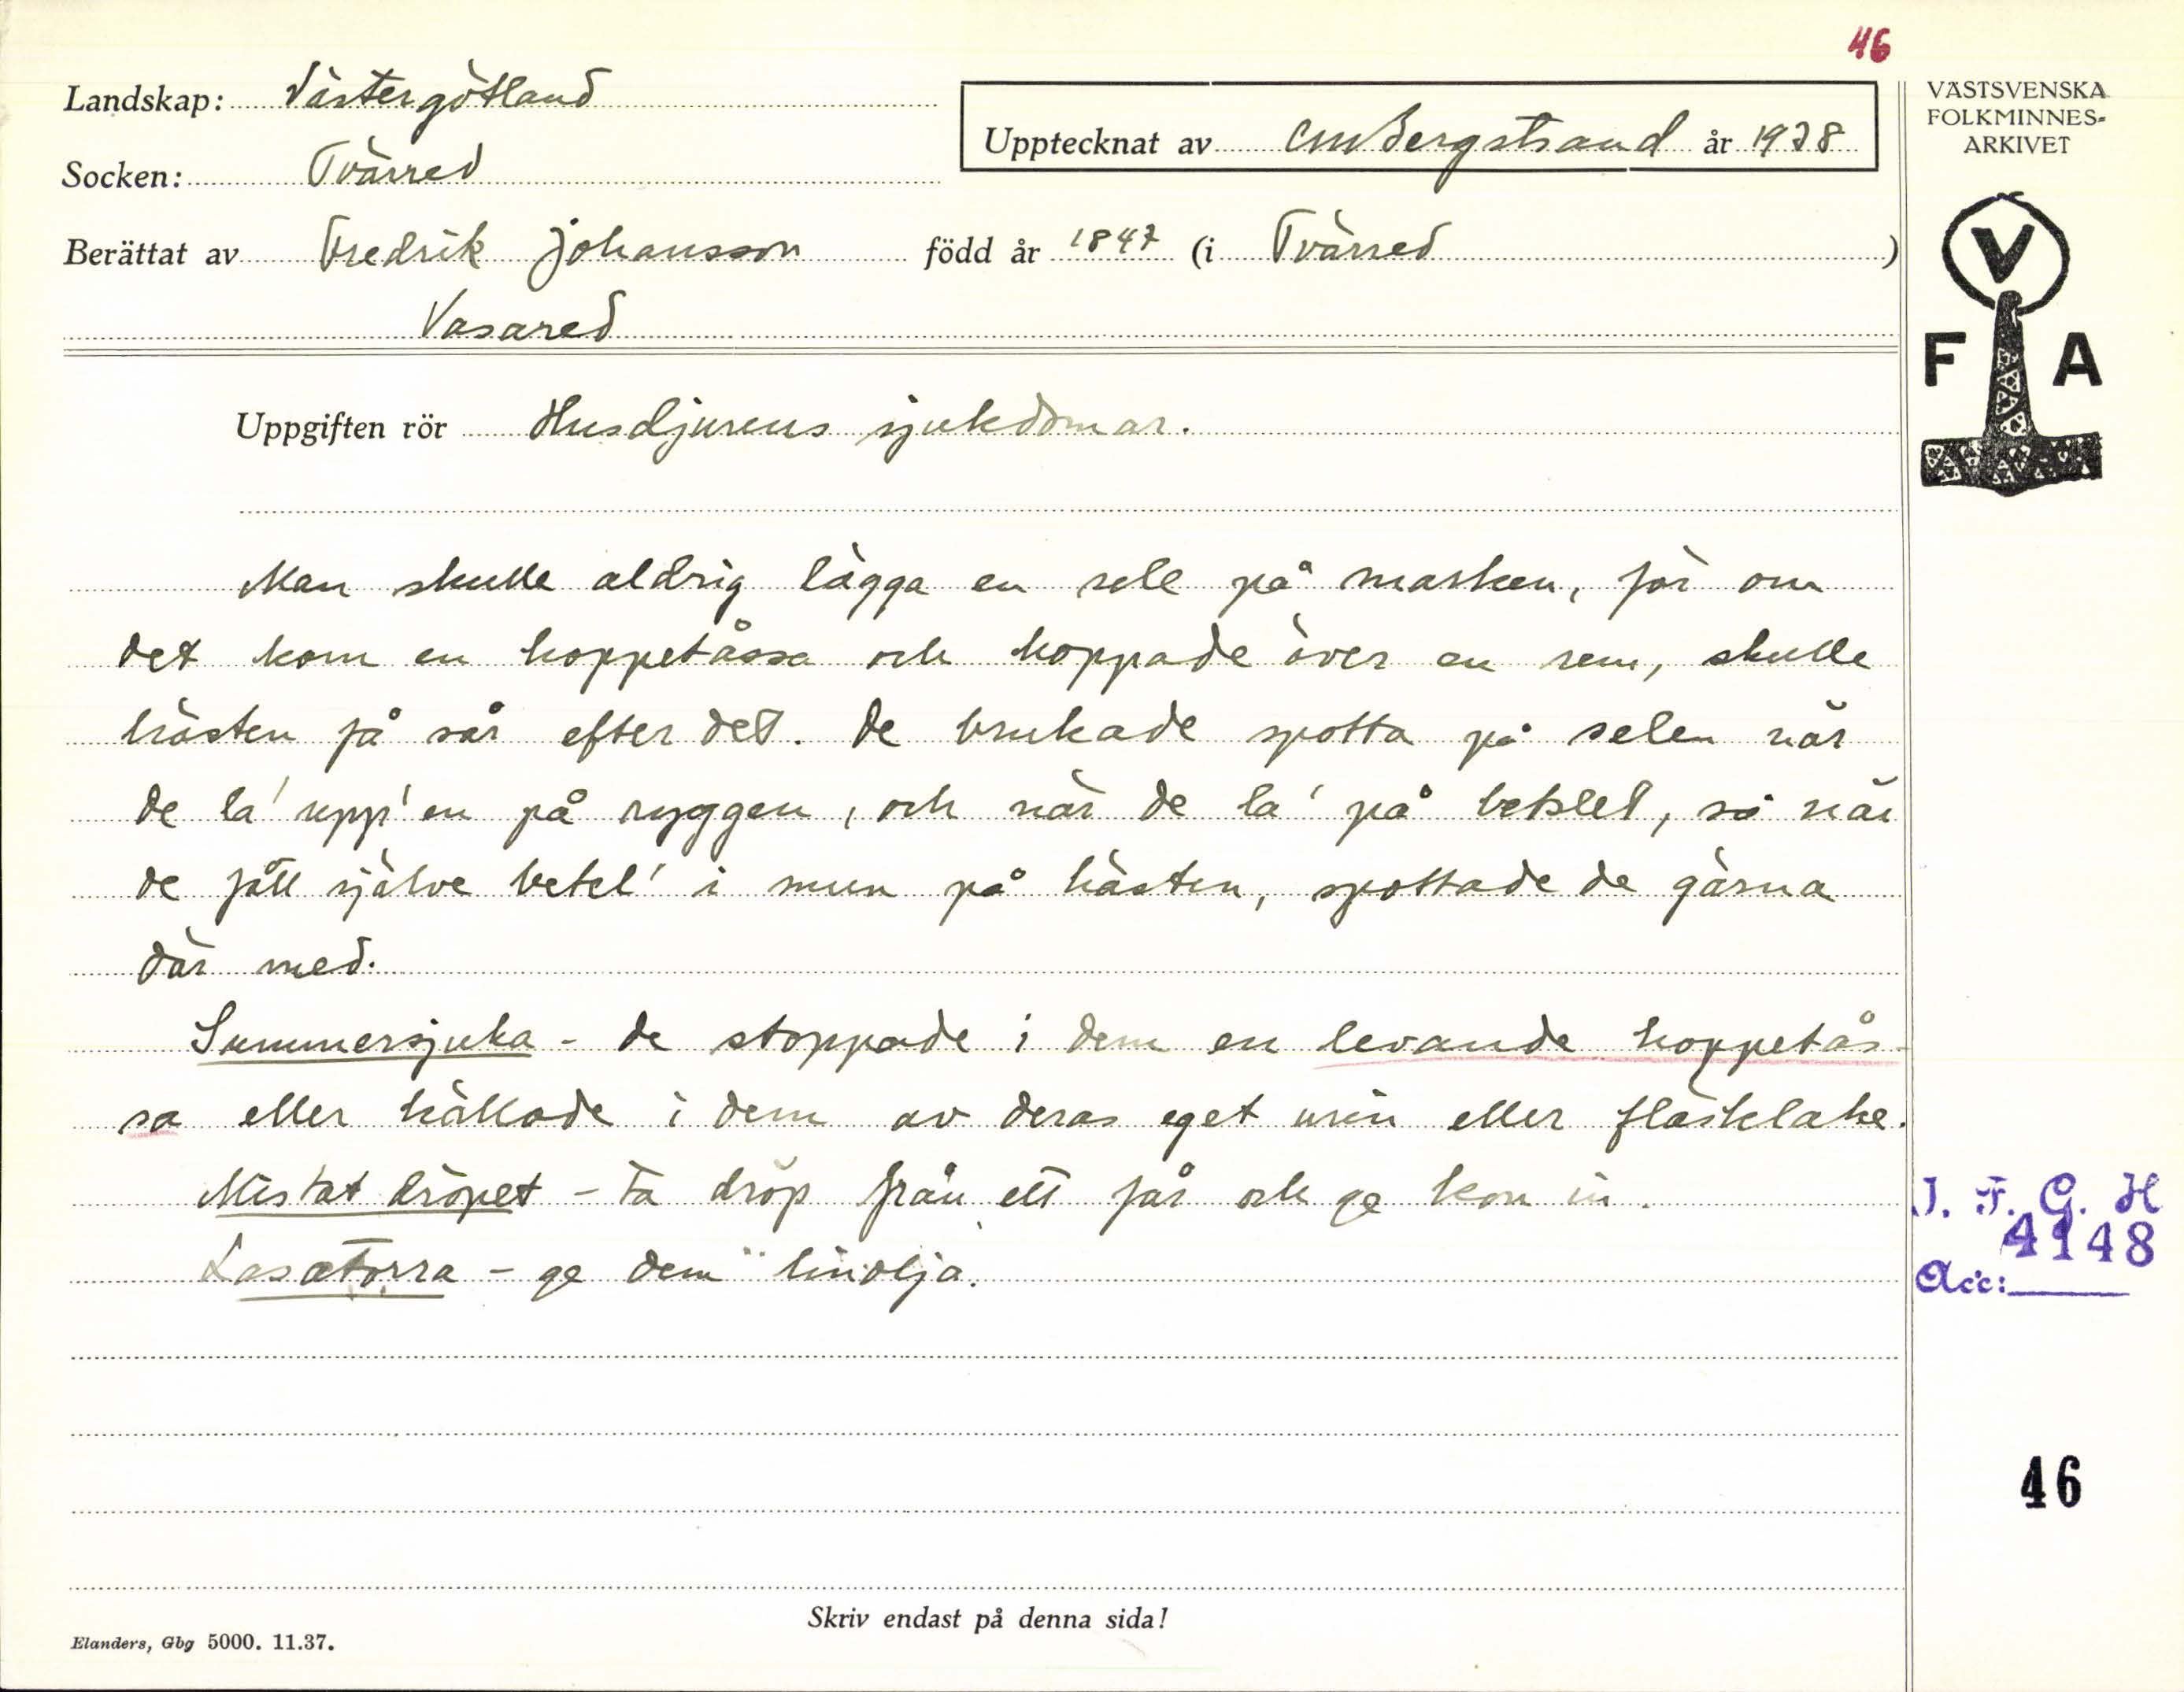 46
Landskap: Västergötland
Socken: Tvärred
Upptecknat av CM Bergstrand år 1938
Berättat av Fredrik Johansson född år 1847 (i Tvärred)
Vasared
VÄSTSVENSKA
FOLKMINNES-
ARKIVET
V
F A
Uppgiften rör Husdjurens sjukdomar.
Man skulle aldrig lägga en sele på marken, för om
det kom en hoppetåssa och hoppade över en rem, skulle
hästen få sår efter det. De brukade spotta på selen när
de la' upp'en på ryggen, och när de la' på betslet, så när
de föll själve betel' i mun på hästen, spottade de gärna
där med.
Summersjuka - de stoppade i dem en levande hoppetås-
sa eller hällade i dem av deras eget urin eller fläsklake.
Mistat dröpet - ta dröp från ett får och ge kon in.
Lasatorra - ge dem linolja.
I. F. G. H
4148
Acc:
46
Skriv endast på denna sida!
Elanders, Gbg 5000. 11.37.